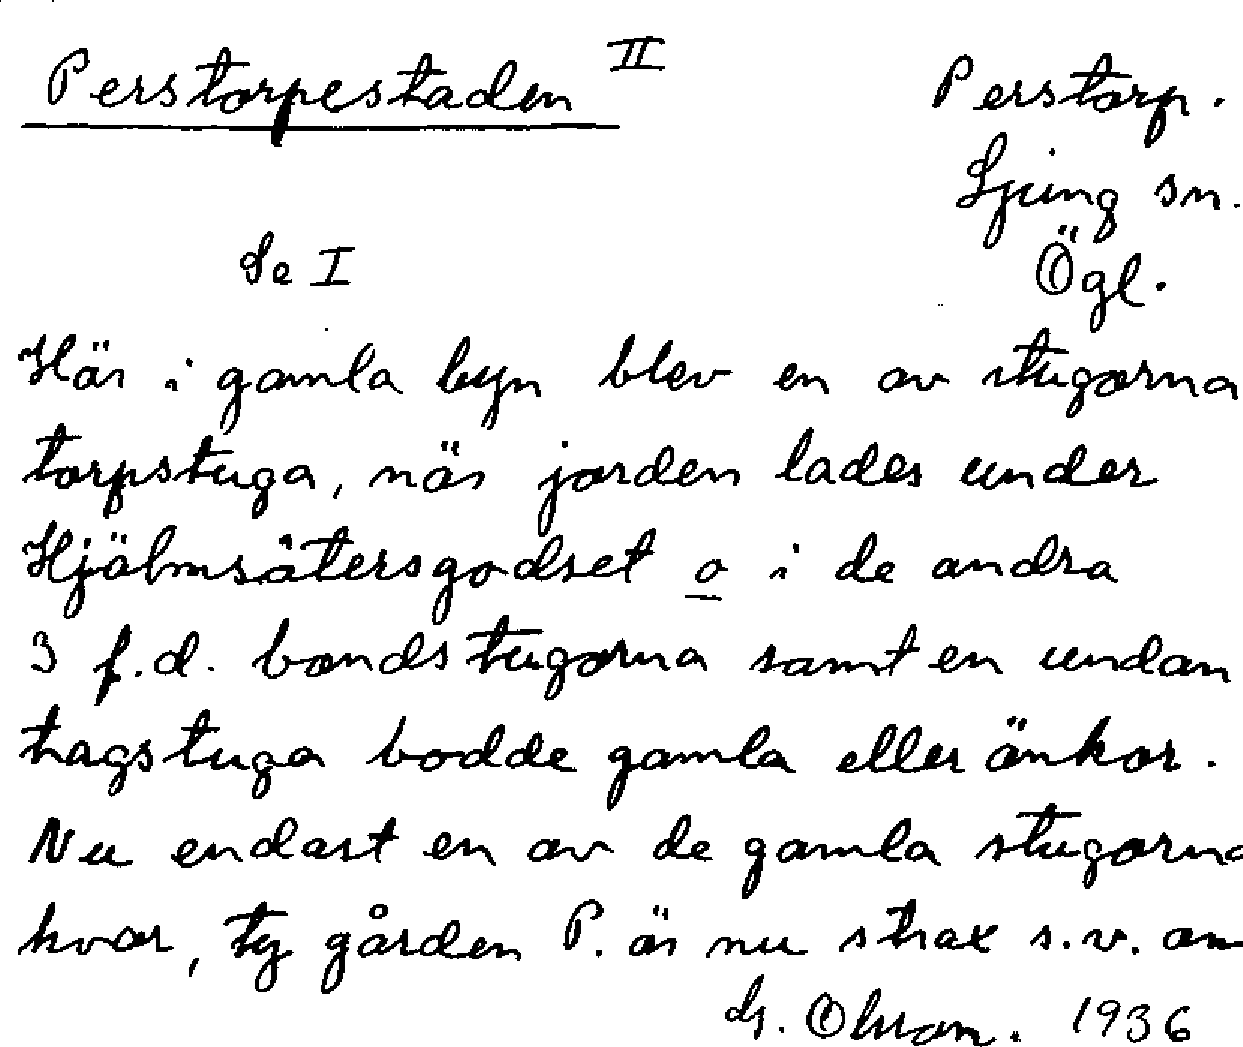 Perstorpestaden II
Perstorp.
Ljung sn.
Ögl.
Se I
Här i gamla byn blev en av stugorna
torpstuga, när jorden lades under
Hjälmsätersgodset o i de andra
3 f.d. bondstugorna samt en undan
tagstuga bodde gamla eller änkor.
Nu endast en av de gamla stugorna
kvar, ty gården P. är nu strax s.v. om
G. Olsson. 1936